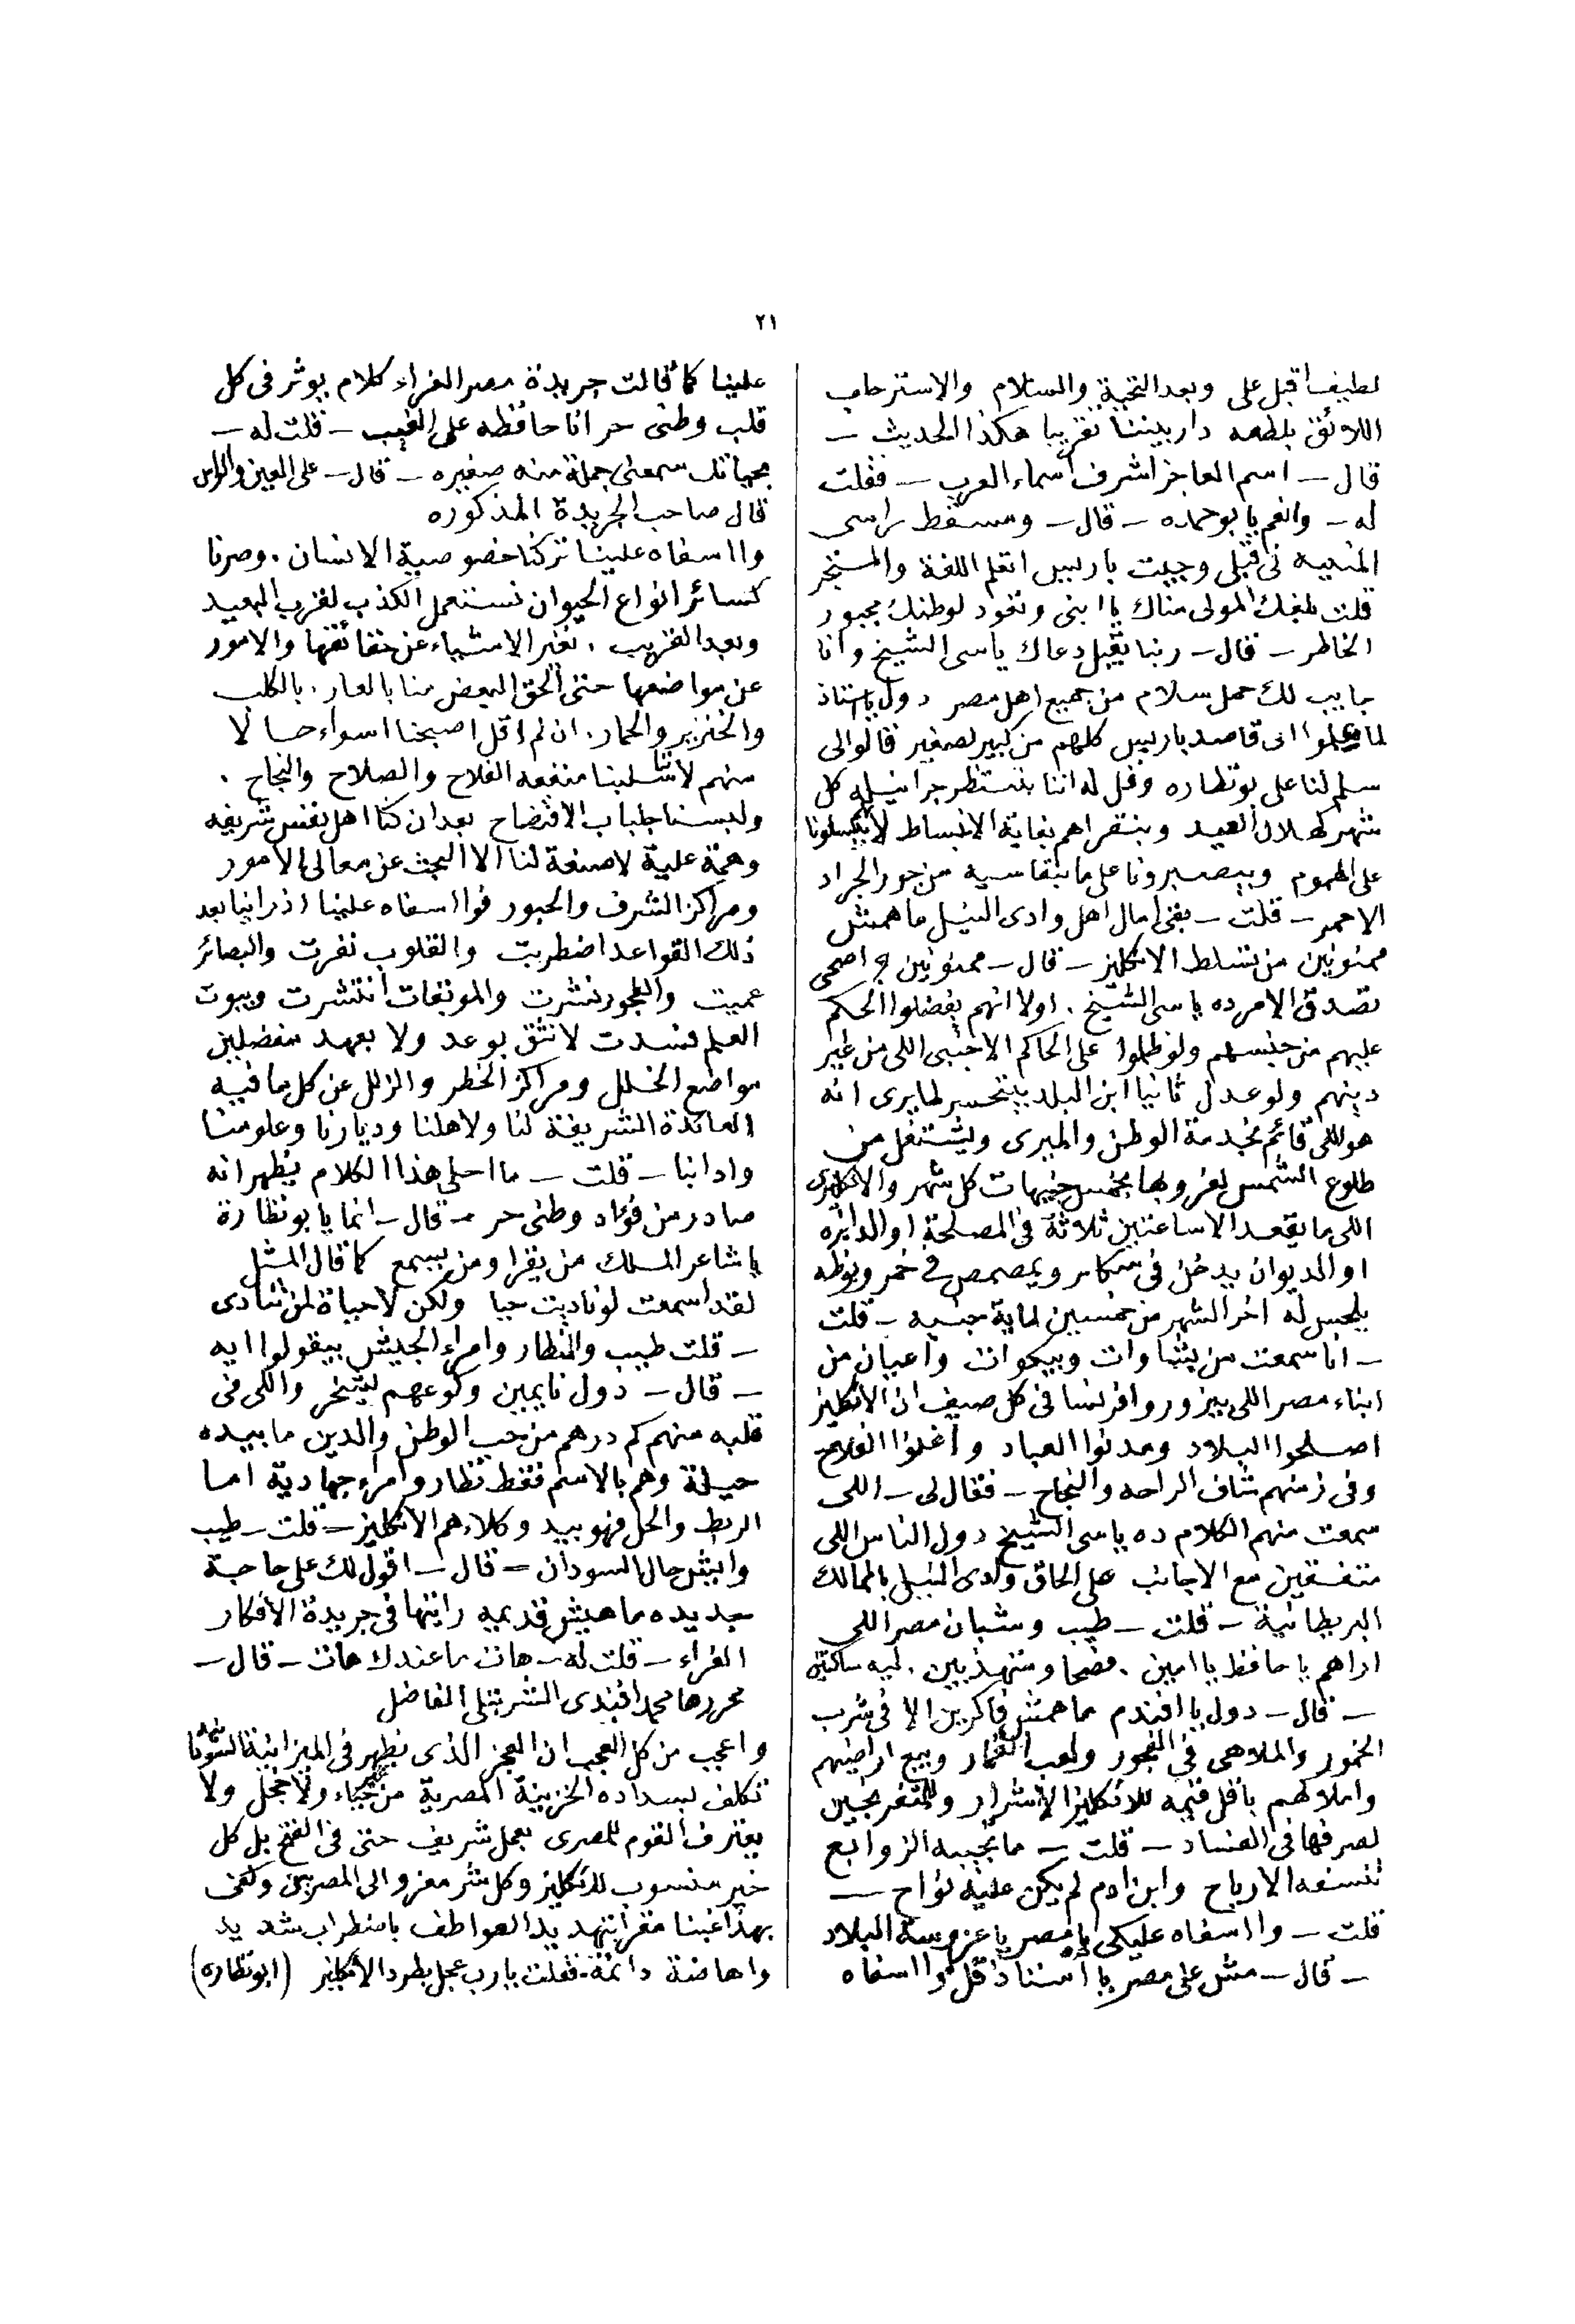 ٢١
لطيف اقبل على وبعد التحية والسلام والاسترحاب
اللائق بلطعه دار بيننا تقريبا هكذا الحديث —
قال — اسم العاجز اشرف اسماء العرب — فقلت
له — وانعم يا بوحمده — قال — ومسقط راسى
المنيه فى قبلى وجيت باريس اتعلم اللغة والمتجر
قلت بلغك المولى مناك يا ابنى وتعود لوطنك مجبور
الخاطر — قال — ربنا يقبل دعاك ياسى الشيخ وانا
جايب لك حمل سلام من جميع اهل مصر دول يا استاذ
لما علموا انى قاصد باريس كلهم من كبير لصغير قالوا لى
سلم لنا على بو نظاره وقل له اننا بنستنظر جرانيله كل
شهر كهلال العيد وبنقراهم بغاية الانبساط لانهم يسلونا
على الهموم وبيصبرونا على ما بنقاسيه من جور الجراد
الاحمر — قلت — بقى امال اهل وادى النيل ما همش
ممنونين من تسلط الانكليز — قال — ممنونين ج اصحى
تصدق الامر ده ياسى الشيخ . اولا انهم يفضلوا الحكم
عليهم من جنسهم ولو ظلموا على الحاكم الاجنبى اللى من غير
دينهم ولو عدل ثانيا ابن البلد بيتحسر لما يرى انه
هو اللى قائم بخدمة الوطن والميرى ويشتغل من
طلوع الشمس لغروبها بخمس جنيهات كل شهر والانكليزى
اللى ما يقعد الا ساعتين ثلاثة فى المصلحة او الدايره
او الديوان يدخن فى سكار ويمصمص فى خمر وبوظه
يلحس له اخر الشهر من خمسين لماية جنيه — قلت
— انا سمعت من بشاوات وبيكوات واعيان من
ابناء مصر اللى بيزوروا فرنسا فى كل صيف ان الانكليز
اصلحوا البلاد ومدنوا العباد واغنوا الفلاح
وفى زمنهم شاف الراحه والنجاح — فقال لى — اللى
سمعت منهم الكلام ده ياسى الشيخ دول الناس اللى
متفقين مع الاجانب على الحاق وادى النيل بالممالك
البريطانية — قلت — طيب وشبان مصر اللى
اراهم يا حافظ يا امين . فصحا ومتهذبين . ليه ساكتين
— قال — دول يا افندم ما همش فاكرين الا فى شرب
الخمور والملاهى فى الفجور ولعب القمار وبيع اراضيهم
واملاكهم باقل قيمه للانكليز الاشرار والمتفرنجين
لصرفها فى الفساد — قلت — ما تجيبه الزوابع
تنسفه الارياح وابن ادم لم يكن عليه نواح —
قلت — وا اسفاه عليكى يا مصر يا عزوسة البلاد
— قال — مش على مصر يا استاذ قل وا اسفاه
علينا كما قالت جريدة مصر الغراء كلام يوثر فى كل
قلب وطنى حر انا حافظه على الغيب — قلت له —
بحياتك سمعنى جملة منه صغيره — قال — على العين والراس
قال صاحب الجريدة المذكوره
وا اسفاه علينا تركنا خصوصية الانسان . وصرنا
كسائر انواع الحيوان نستعمل الكذب لقرب البعيد
وبعد القريب . نغير الاشياء عن حقائقها والامور
عن مواضعها حتى الحق البعض منا بالعار . بالكلب
والخنزير والحمار . ان لم اقل اصبحنا اسواء حالا
منهم لانسلبنا منفعه الفلاح والصلاح والنجاح .
ولبسنا جلباب الافتضاح بعد ان كنا اهل نفس شريفه
وهمة علية لا صنعة لنا الا البحث عن معالى الامور
ومراكز الشرف والحبور فوا اسفاه علينا اذ راينا بعد
ذلك القواعد اضطربت والقلوب نفرت والبصائر
عميت والفجور نشرت والموبقات انتشرت وبيوت
العلم فسدت لا نثق بوعد ولا بعهد مفضلين
مواضع الخلل ومراكز الخطر والزلل عن كل ما فيه
العائدة الشريفة لنا ولاهلنا وديارنا وعلومنا
وادابنا — قلت — ما احلى هذا الكلام يظهر انه
صادر من فؤاد وطنى حر — قال — انما يا بو نظارة
يا شاعر الملك من يقرا ومن يسمع كما قال المثل
لقد اسمعت لو ناديت حيا ولكن لا حياة لمن تنادى
— قلت طيب والنظار وامراء الجيش بيقولوا ايه
— قال — دول نايمين وكوعهم ليتخر واللى فى
قلبه منهم كم درهم من حب الوطن والدين ما بيده
حيلة وهم بالاسم فقط نظار وامراء جهادية اما
الربط والحل فهو بيد وكلاءهم الانكليز — قلت — طيب
وايش حال السودان = قال — اقول لك على حاجة
جديده ما هيش قديمه رايتها فى جريدة الافكار
الغراء — قلت له — هات ما عندك هات — قال —
محررها محمد افندى الشربتلى الفاضل
واعجب من كل العجب ان العجز الذى يظهر فى الميزانية السودانية
تكلف بسداده الخزينة المصرية من غير حياء ولا خجل ولا
يعترف القوم للمصرى بعمل شريف حتى فى الفتح بل كل
خير منسوب للانكليز وكل شر معزو الى المصريين وكفى
بهذا غبنا مقرا بتهديد العواطف باضطراب شديد
واهاضة دائمة — فقلت يا رب عجل بطرد الانكليز (ابو نظاره)